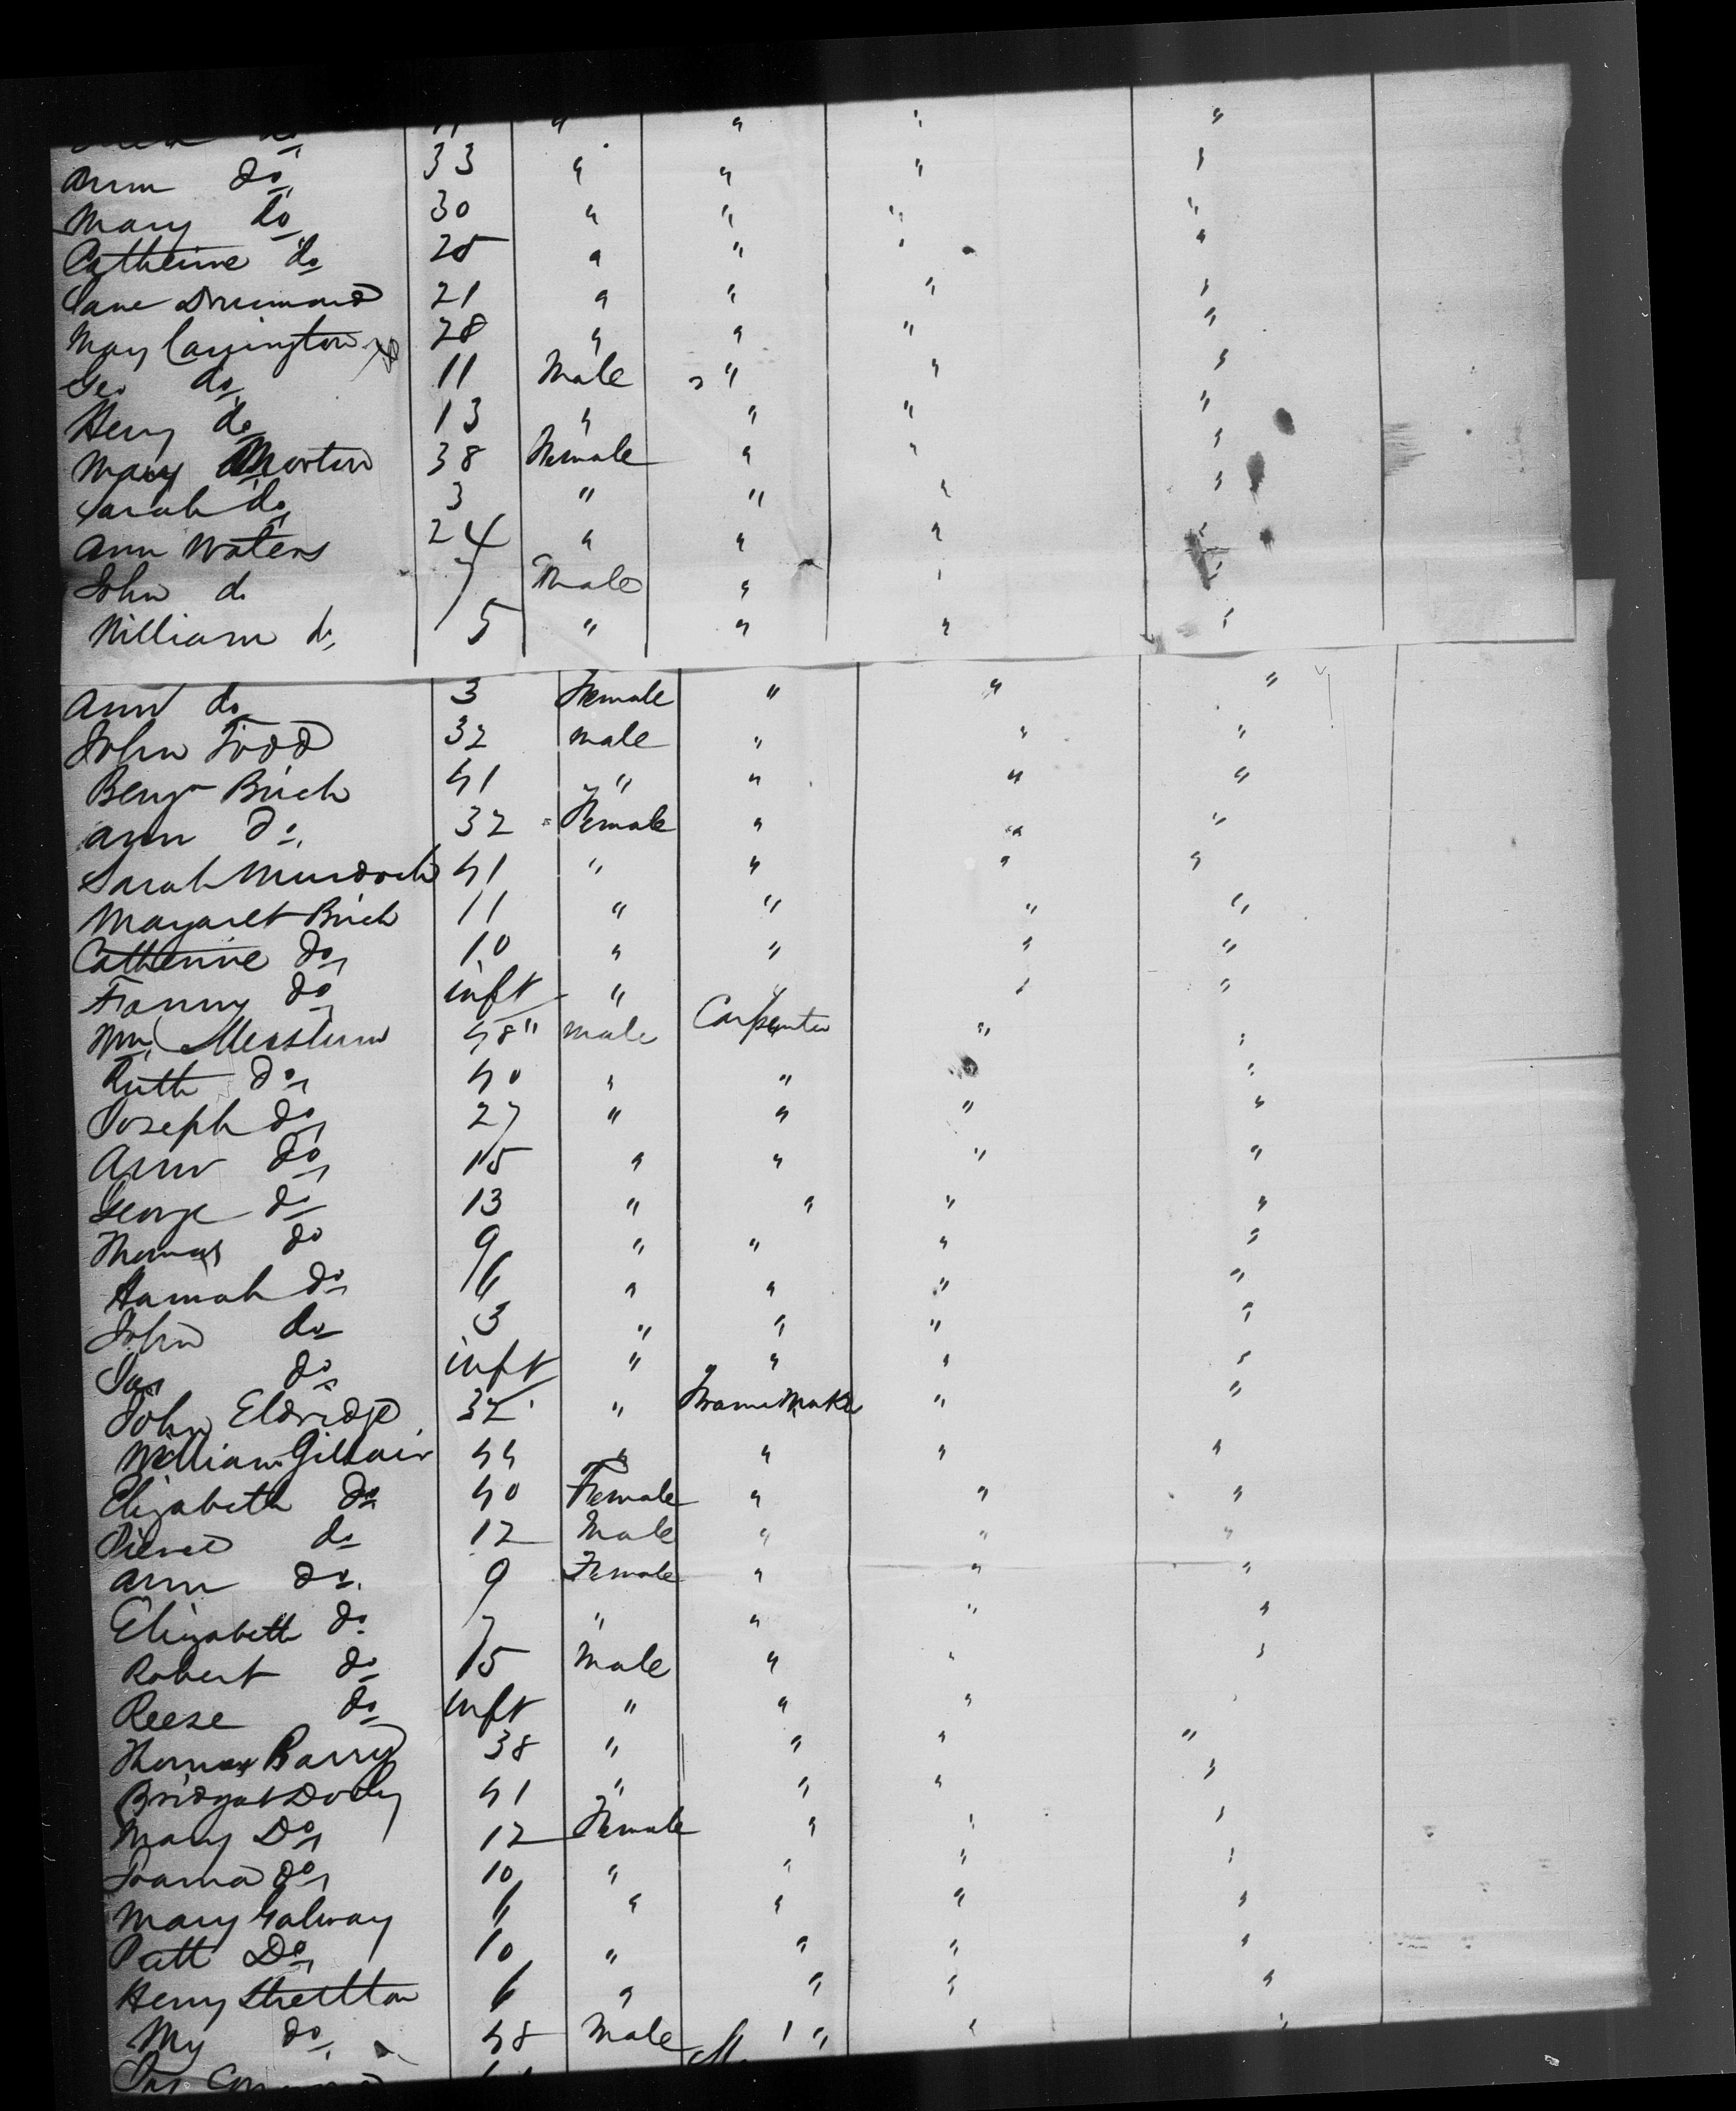 do 11 " " " "
Ann do 33 " " " "
Mary do 30 " " " "
Catherine do 25 " " " "
Jane Drummond 21 " " " "
Mary Carrington 28 " " " "
Geo do 11 Male " " "
Henry do 13 " " " "
Mary Morton 38 Female " " "
Sarah do 3 " " " "
Ann Waters 24 " " " "
John do 7 Male " " "
William do 5 " " " "
Ann do 3 Female " " "
John Todd 32 male " " "
Benjn Birch 41 " " " "
Ann do 32 Female " " "
Sarah Murdoch 41 " " " "
Margaret Birch 11 " " " "
Catherine do 10 " " " "
Fanny do inft " " " "
Wm 48 " male Carpenter " "
Ruth do 40 " " " "
Joseph do 27 " " " "
Ann do 15 " " " "
George do 13 " " " "
Thomas do 9 " " " "
Hannah do 6 " " " "
John do 3 " " " "
Jas do inft " " " "
John Eldridge 32 " Frame Maker " "
William 44 " " " "
Elizabeth do 40 Female " " "
do 12 Male " " "
Ann do 9 Female " " "
Elizabeth do 7 " " " "
Robert do 5 Male " " "
Reese do inft " " " "
Thomas Barry 38 " " " "
Bridget 41 " " " "
Mary Do 12 Female " " "
do 10 " " " "
Mary Galway 6 " " " "
Patt Do 10 " " " "
Henry Stretton 6 " " " "
My do 48 Male " " "
Jas